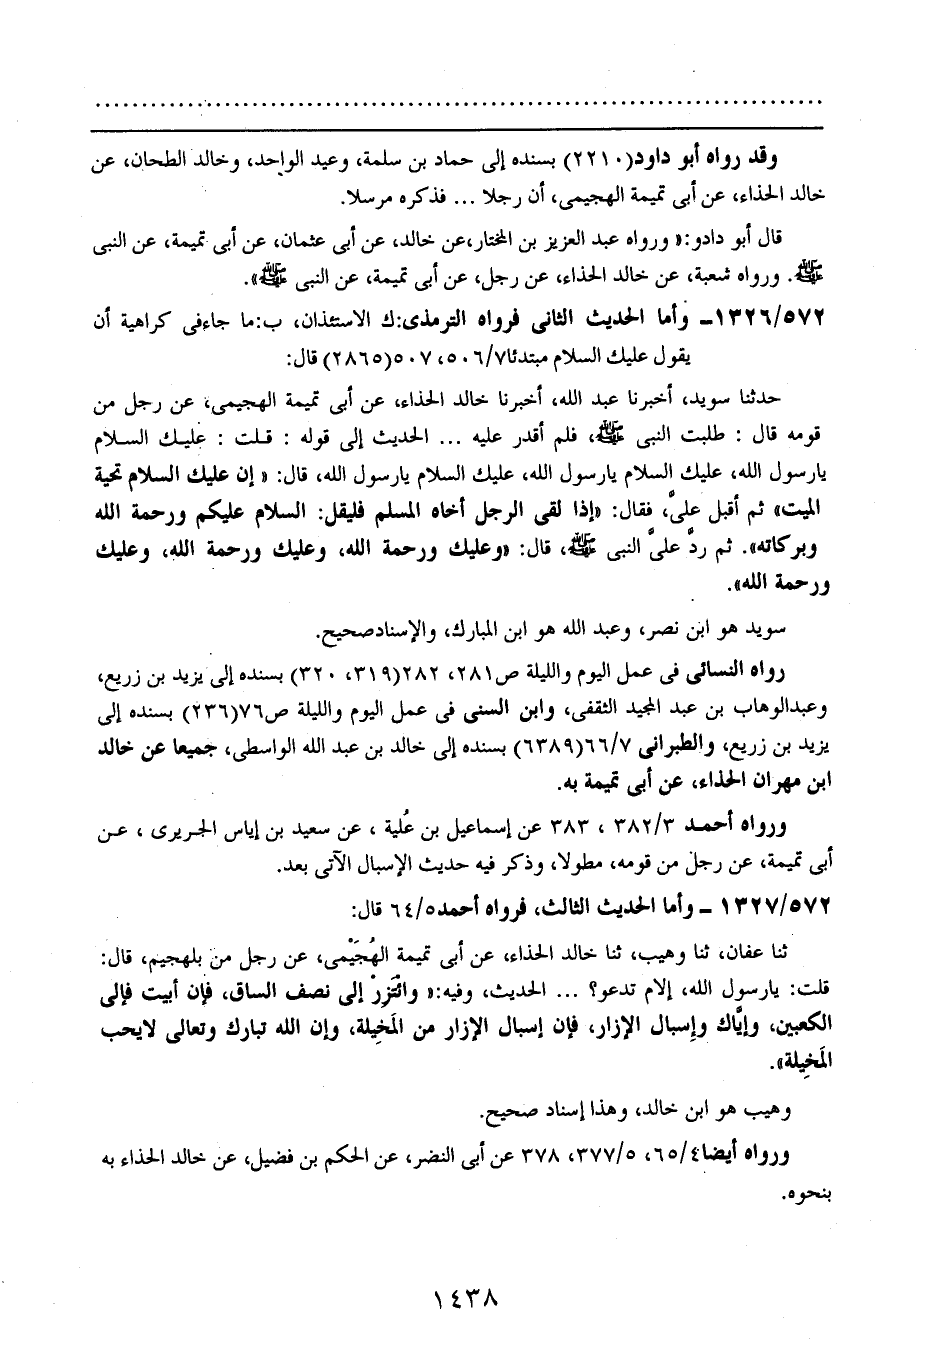 وقد رواه أبو داود(٢٢١٠) بسنده إلى حماد بن سلمة، وعبد الواحد، وخالد الطحان، عن
خالد الحذاء، عن أبى تميمة الهجيمى، أن رجلا ... فذكره مرسلا.
قال أبو دادو:« ورواه عبد العزيز بن المختار،عن خالد، عن أبى عثمان، عن أبى تميمة، عن النبى
ﷺ. ورواه شعبة، عن خالد الحذاء، عن رجل، عن أبى تميمة، عن النبى ﷺ».
١٣٢٦/٥٧٢- وأما الحديث الثانى فرواه الترمذى:ك الاستئذان، ب:ما جاءفى كراهية أن
يقول عليك السلام مبتدئا٥٠٦/٧، ٥٠٧(٢٨٦٥) قال:
حدثنا سويد، أخبرنا عبد الله، أخبرنا خالد الحذاء، عن أبى تميمة الهجيمى، عن رجل من
قومه قال : طلبت النبى ﷺ، فلم أقدر عليه ... الحديث إلى قوله : قـلت : عليـك السـلام
يارسول الله، عليك السلام يارسول الله، عليك السلام يارسول الله، قال: « إن عليك السلام تحية
الميت» ثم أقبل علىَّ، فقال: «إذا لقى الرجل أخاه المسلم فليقل: السلام عليكم ورحمة الله
وبركاته». ثم ردَّ علىَّ النبى ﷺ، قال: «وعليك ورحمة الله، وعليك ورحمة الله، وعليك
ورحمة الله».
سويد هو ابن نصر، وعبد الله هو ابن المبارك، والإسنادصحيح.
رواه النسائى فى عمل اليوم والليلة ص٢٨١، ٢٨٢(٣١٩، ٣٢٠) بسنده إلى يزيد بن زريع،
وعبدالوهاب بن عبد المجيد الثقفى، وابن السنى فى عمل اليوم والليلة ص٧٦(٢٣٦) بسنده إلى
يزيد بن زريع، والطبرانى ٦٦/٧(٦٣٨٩) بسنده إلى خالد بن عبد الله الواسطى، جميعا عن خالد
ابن مهران الحذاء، عن أبى تميمة به.
ورواه أحمـد ٣٨٢/٣ ، ٣٨٣ عن إسماعيل بن عُلية ، عن سعيد بن إياس الجـريرى ، عـن
أبى تميمة، عن رجل من قومه، مطولا، وذكر فيه حديث الإسبال الآتى بعد.
١٣٢٧/٥٧٢ - وأما الحديث الثالث، فرواه أحمد٦٤/٥ قال:
ثنا عفان، ثنا وهيب، ثنا خالد الحذاء، عن أبى تميمة الهُجَيْمى، عن رجل من بلهجيم، قال:
قلت: يارسول الله، إلام تدعو؟ ... الحديث، وفيه:« واتَّزِرْ إلى نصف الساق، فإن أبيت فإلى
الكعبين، وإيَّاك وإسبال الإزار، فإن إسبال الإزار من المَخِيلة، وإن الله تبارك وتعالى لايحب
المَخِيلة».
وهيب هو ابن خالد، وهذا إسناد صحيح.
ورواه أيضا٦٥/٤، ٣٧٧/٥، ٣٧٨ عن أبى النضر، عن الحكم بن فضيل، عن خالد الحذاء به
بنحوه.
١٤٣٨